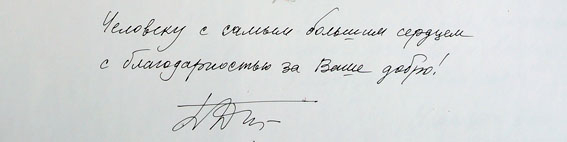 Человеку с самым большим сердцем
с благодарностью за Ваше добро!